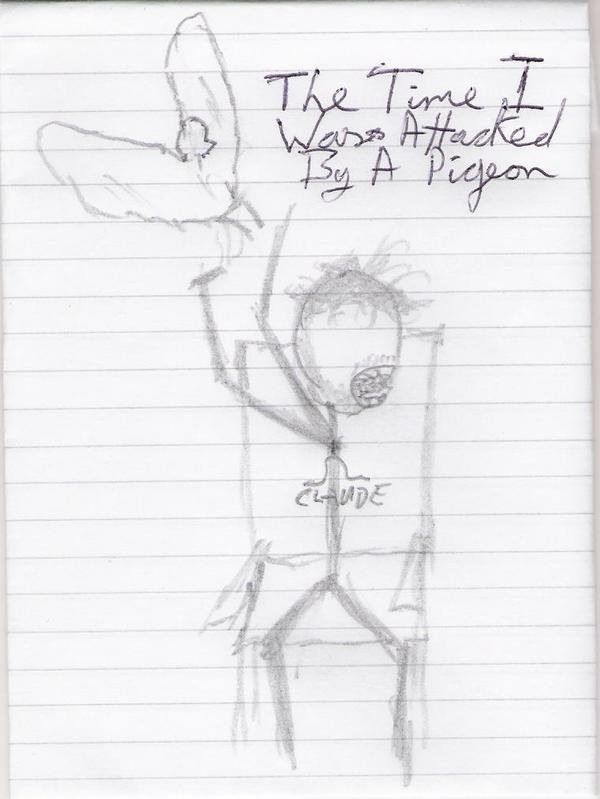 The Time I
Was Attacked
By A Pigeon
CLAUDE